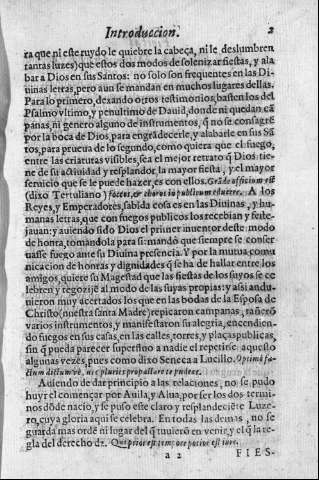 Introduccion. 2
ra que ni este ruydo le quiebre la cabeça, ni le deslumbren
tantas luzes) que estos dos modos de solenizar fiestas, y ala
bar a Dios en sus Santos: no solo son frequentes en las Di-
uinas letras, pero aun se mandan en muchos lugares dellas.
Para lo primero, dexando otros testimonios, basten los del
Psalmo vltimo, y penultimo de Dauid, donde ni quedan cã
panas, ni genero alguno de instrumentos, q̃ no se consagrẽ
por la boca de Dios, para engrãdecerle, y alabarle en sus Sã
tos, para prueua de lo segundo, como quiera que el fuego,
entre las criaturas visibles, sea el mejor retrato q̃ Dios tie-
ne de su actiuidad y resplandor, la mayor fiesta, y el mayor
seruicio que se le puede hazer, es con ellos. Grãde officium est
(dixo Tertuliano) focos, et choros in publicum educere, A los
Reyes, y Emperadores, sabida cosa es en las Diuinas, y hu-
manas letras, que con fuegos publicos los recebian y feste-
jauan: y auiendo sido Dios el primer inuentor deste modo
de honra, tomandola para si: mandò que siempre se conser
uasse fuego ante su Diuina presencia. Y por la mutua comu
nicacion de honras y dignidades q̃ se ha de hallar entre los
amigos, quiere su Magestad que las fiestas de los suyos se ce
lebren y regozijẽ al modo de las suyas propias: y assi andu-
uieron muy acertados los que en las bodas de la Esposa de
Christo (nuestra santa Madre) repicaron campanas, tañerõ
varios instrumentos, y manifestaron su alegria, encendien-
do fuegos en sus casas, en las calles, torres, y plaças publicas,
sin q̃ pueda parecer superfluo a nadie el repetirse aquesto
algunas vezes, pues como dixo Seneca a Lucillo. Optimè fa-
ctum dictumvè, nec pluries propassare te pudeat.
Auiendo de dar principio a las relaciones, no se pudo
huyr el començar por Auila, y Alua, por ser los dos termi-
nos dõde nacio, y se puso este claro y resplandeciẽte Luze-
ro, cuya gloria aqui se celebra. En todas las demas, no se
guarda mas ordẽ ni lugar del q̃ tuuierõ en venir, y el q̃ la re-
gla del derecho da. Qui prior est tempore potior est iure.
a 2 FIES-